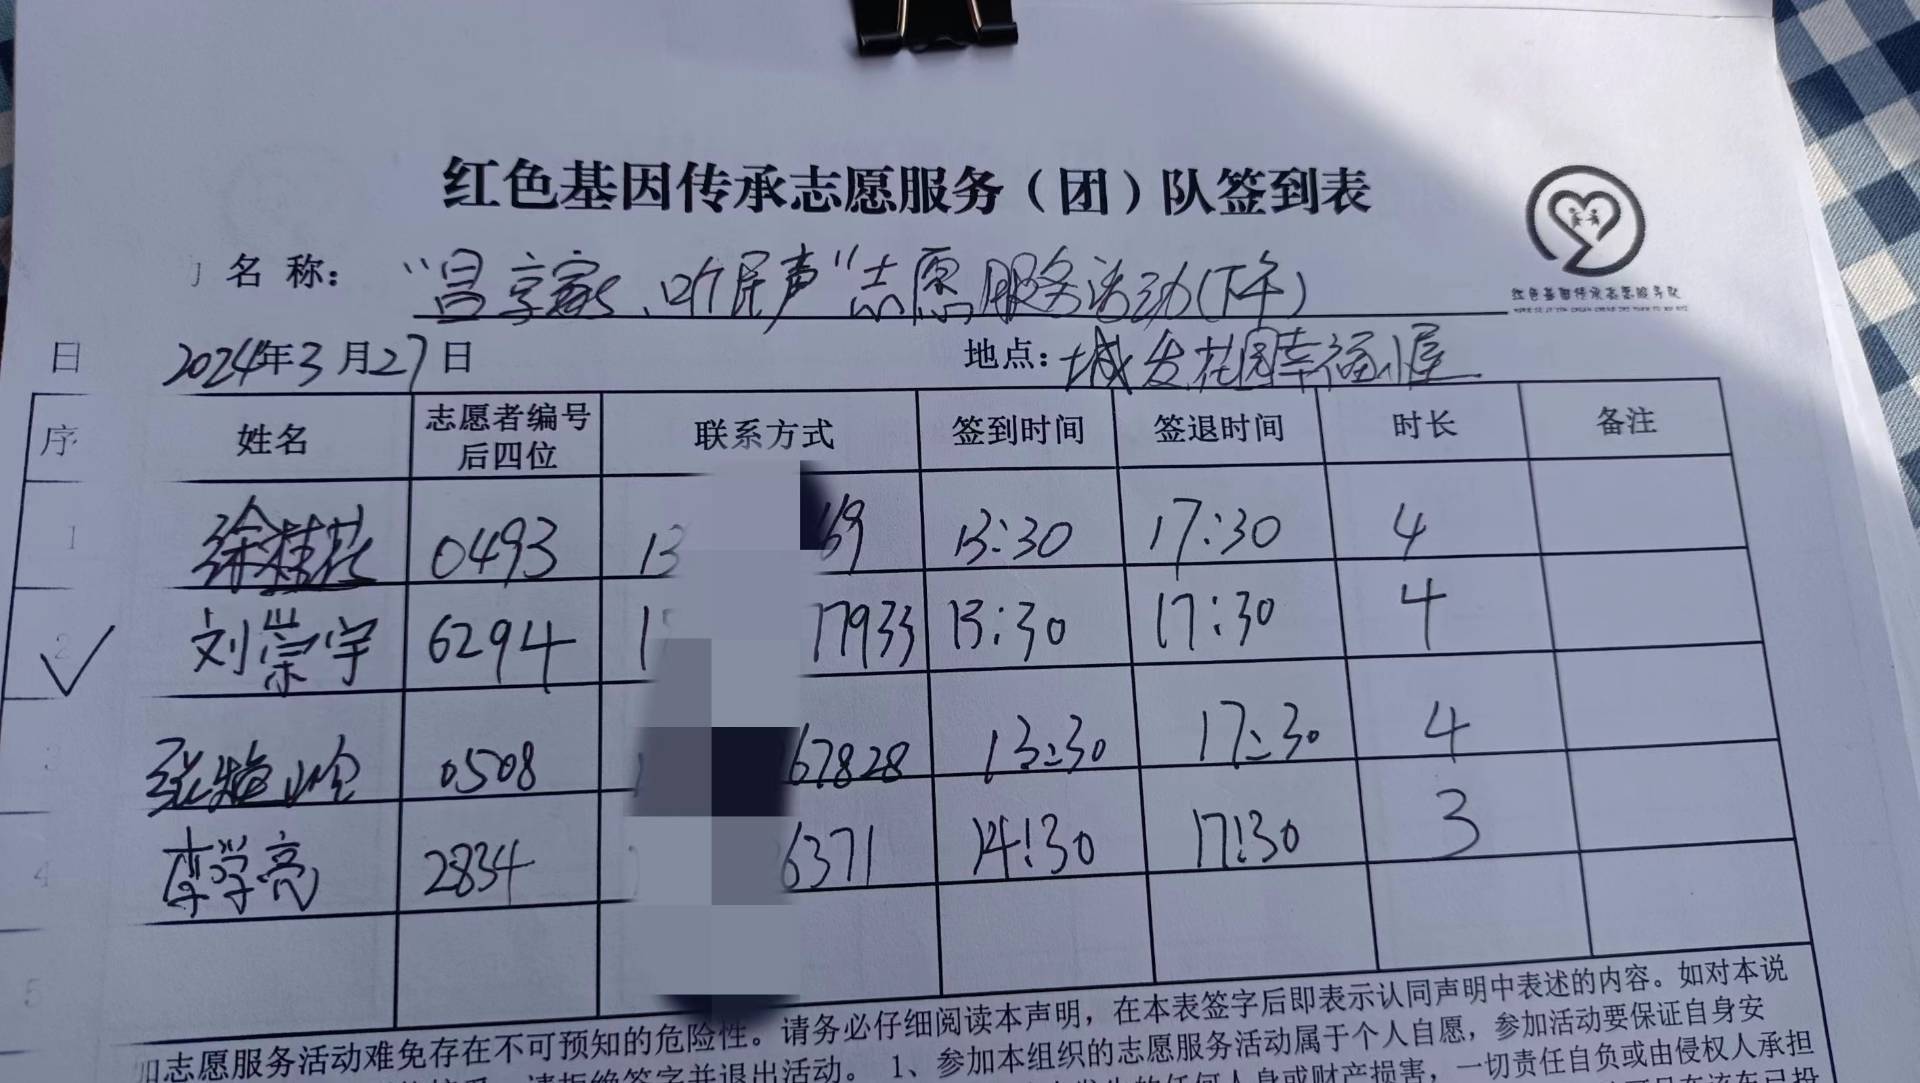 红色基因传承志愿服务（团）队签到表
名称：“昌享家、听民声”志愿服务活动（下午）
红色基因传承志愿服务队
日 2024年3月27日 地点：城发花园幸福小屋
序 姓名 志愿者编号后四位 联系方式 签到时间 签退时间 时长 备注
1 徐桂花 0493 13 69 13:30 17:30 4
2 刘崇宇 6294 1 17933 13:30 17:30 4
3 张梅岭 0508 67828 13:30 17:30 4
4 李学亮 2834 6371 14:30 17:30 3
5
加志愿服务活动难免存在不可预知的危险性。请务必仔细阅读本声明，在本表签字后即表示认同声明中表述的内容。如对本说
请拒绝签字并退出活动。 1、参加本组织的志愿服务活动属于个人自愿，参加活动要保证自身安
任何人身或财产损害，一切责任自负或由侵权人承担